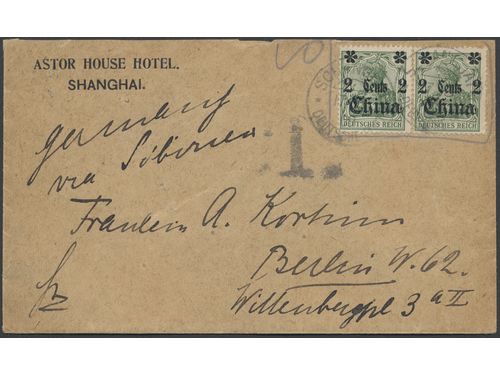 ASTOR HOUSE HOTEL.
SHANGHAI.
2 Cents 2
China
DEUTSCHES REICH
2 Cents 2
China
DEUTSCHES REICH
Germany
via Siberien
1.
Fräulein A. Kortüm
Berlin W. 62.
Wittenbergpl 3 a II